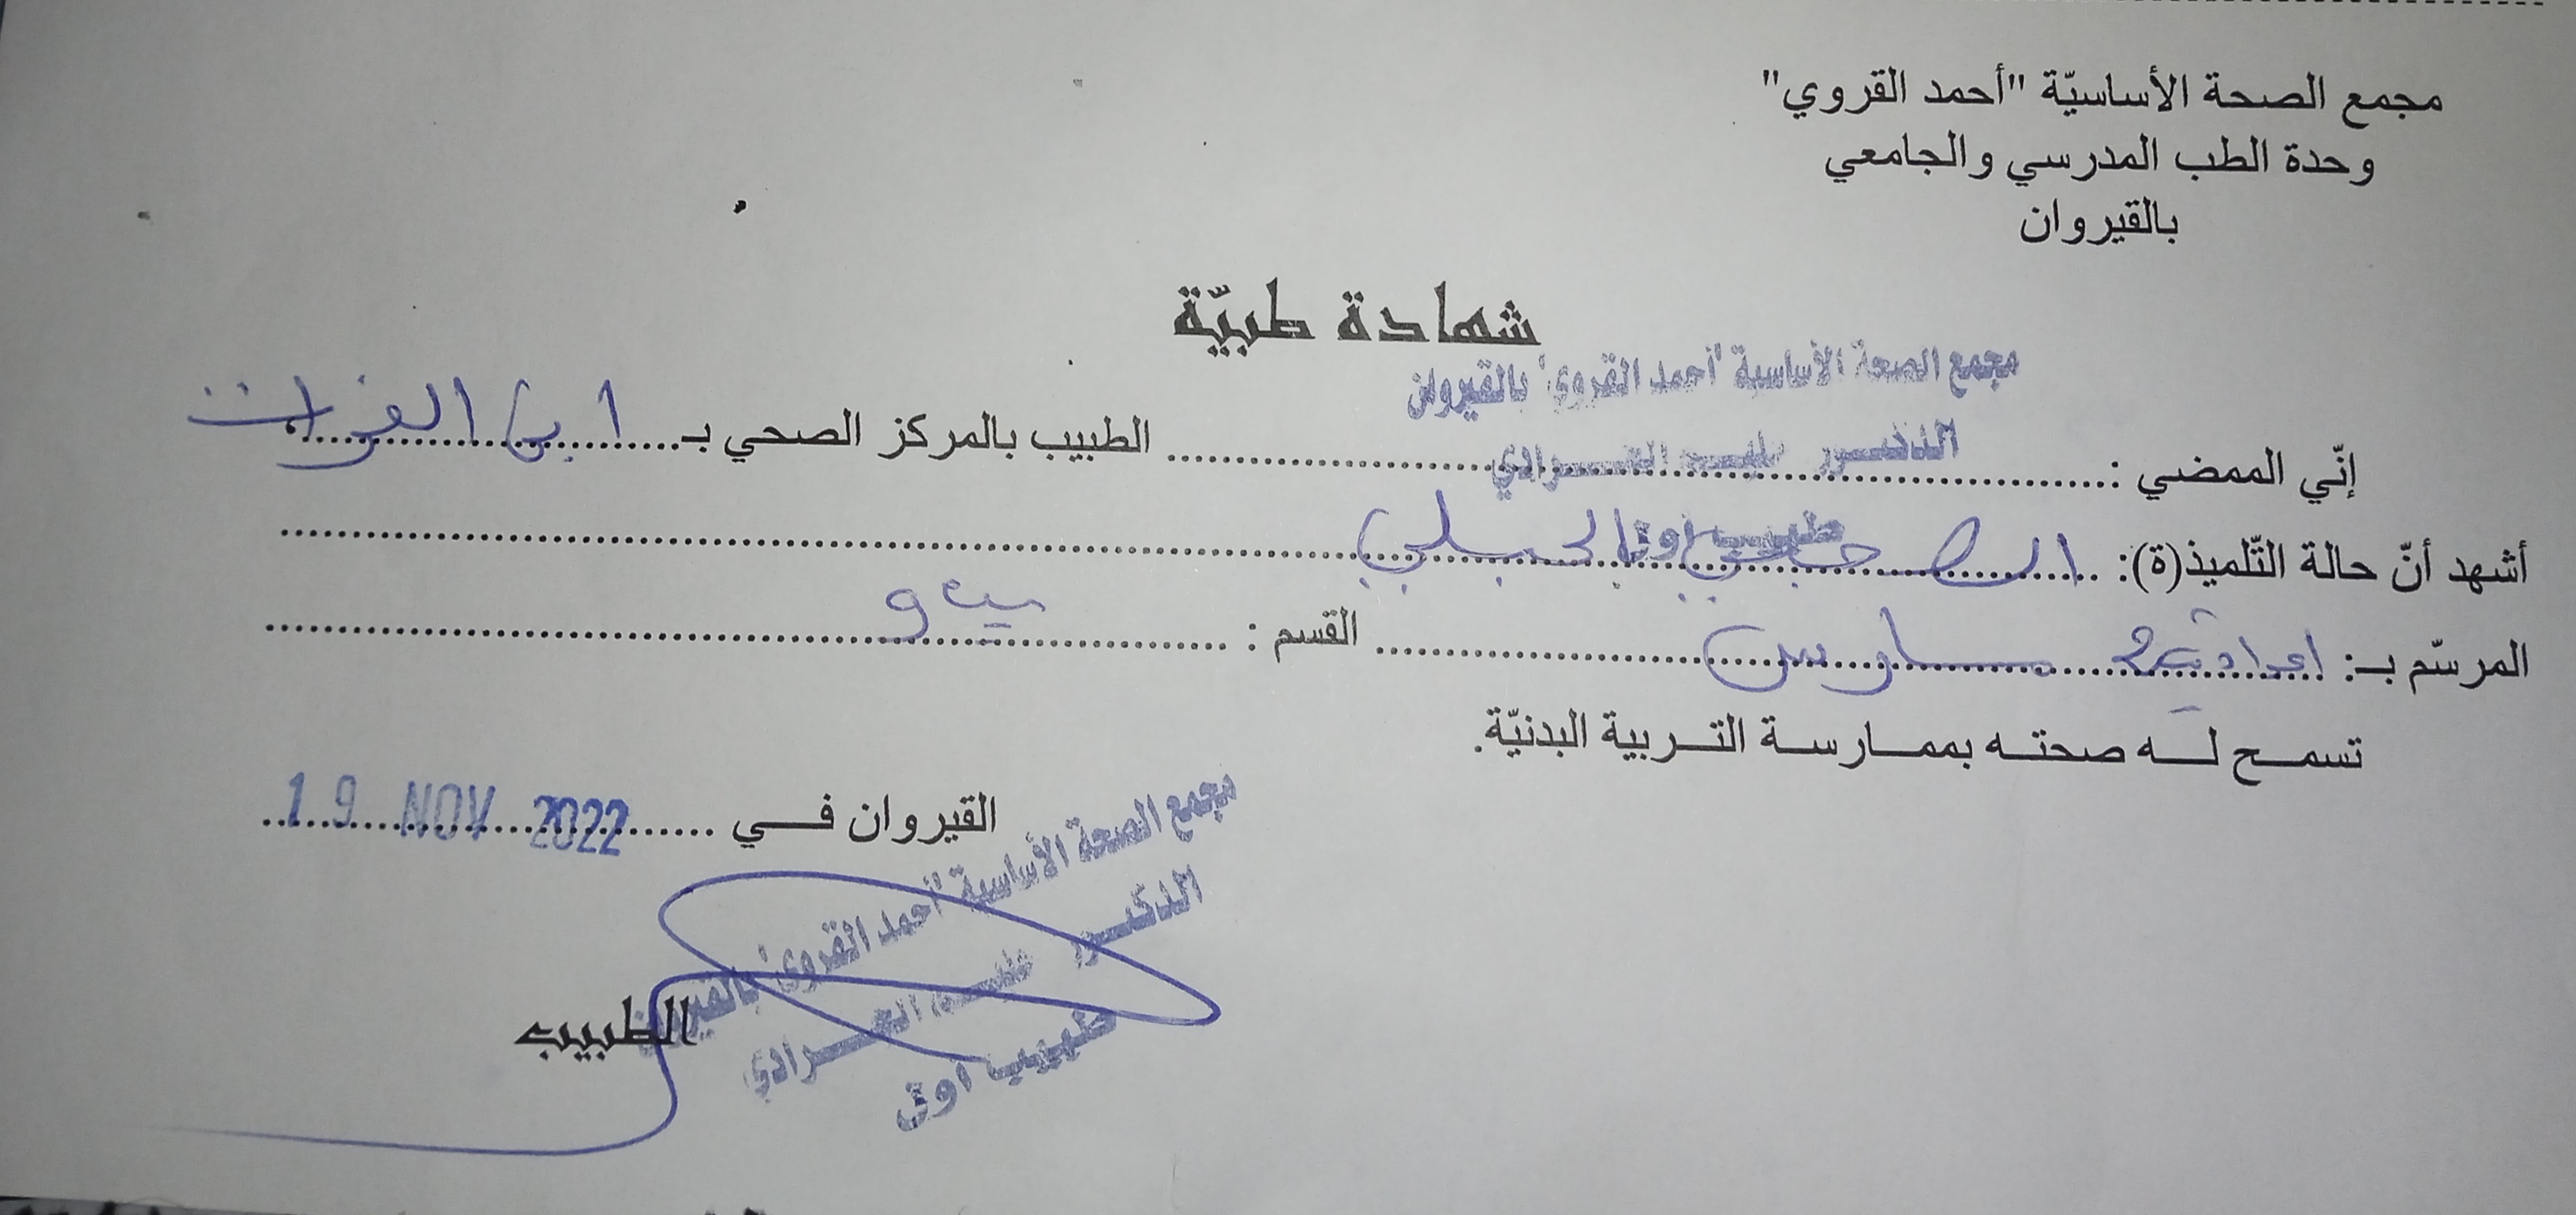 مجمع الصحة الأساسيّة "أحمد القروي"
وحدة الطب المدرسي والجامعي
بالقيروان
شهادة طبيّة
مجمع الصحة الأساسية "أحمد القروي" بالقيروان
الدكتور
طبيب أول
إنّي الممضي : الطبيب بالمركز الصحي بـ ابن الفرات
أشهد أنّ حالة التّلميذ(ة):
المرسّم بـ: اعدادية القسم :
تسمح له صحته بممارسة التربية البدنيّة.
القيروان في 19 NOV 2022
مجمع الصحة الأساسية "أحمد القروي" بالقيروان
الدكتور
طبيب أول
الطبيب